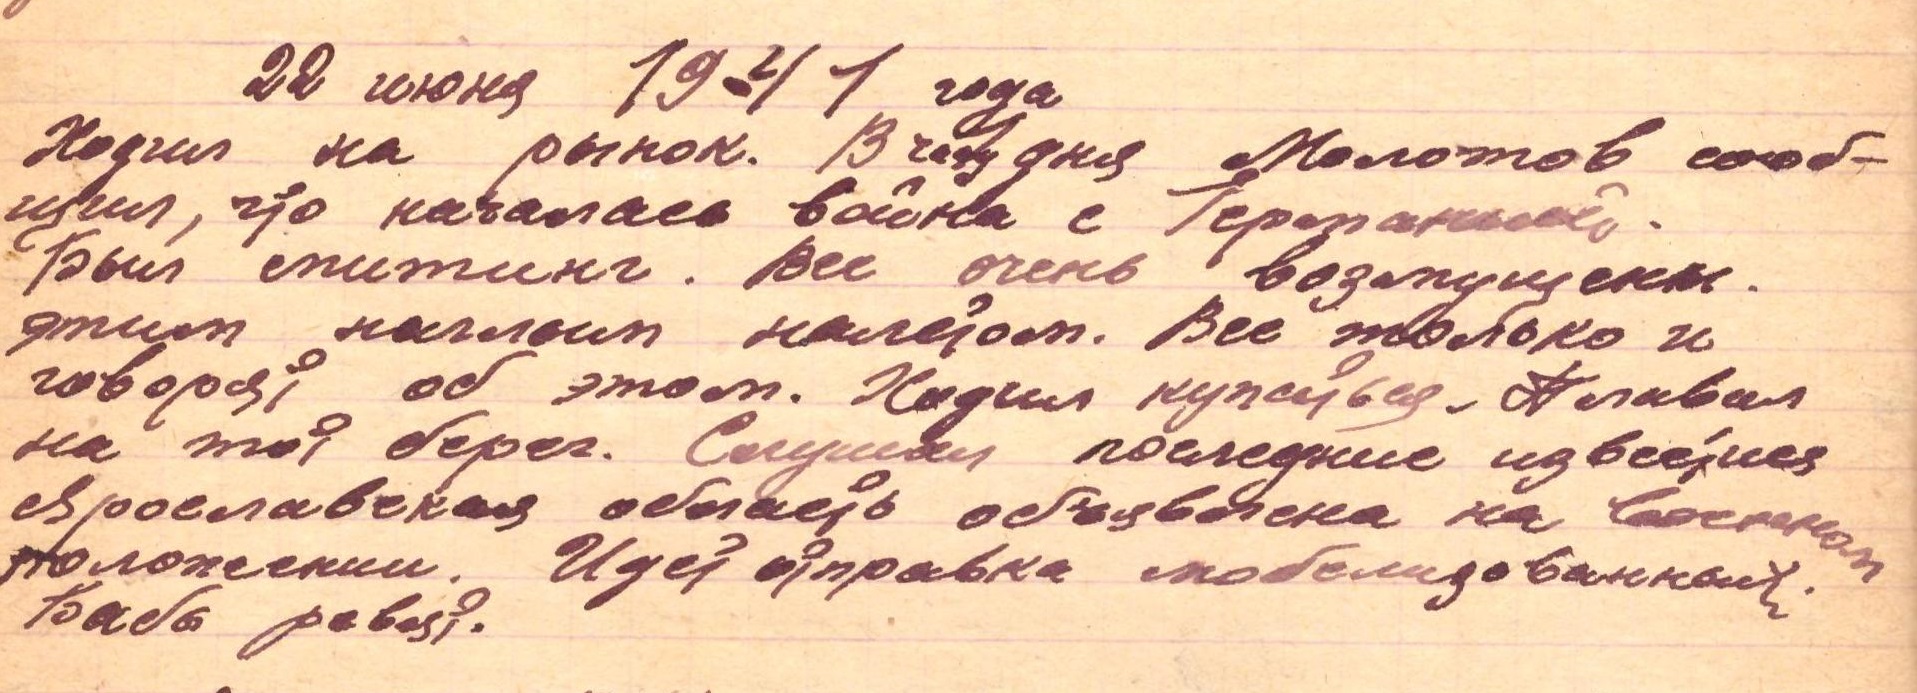 22 июня 1941 года
Ходил на рынок. В часу дня Молотов сооб-
щил, что началась война с Германией.
Был митинг. Все очень возмущены.
этим наглым налетом. Все только и
говорят об этом. Ходил купаться. Плавал
на тот берег. Слушал последние известия
Ярославская область объявлена на военном
положении. Идет отправка мобелизованных.
Бабы ревят.